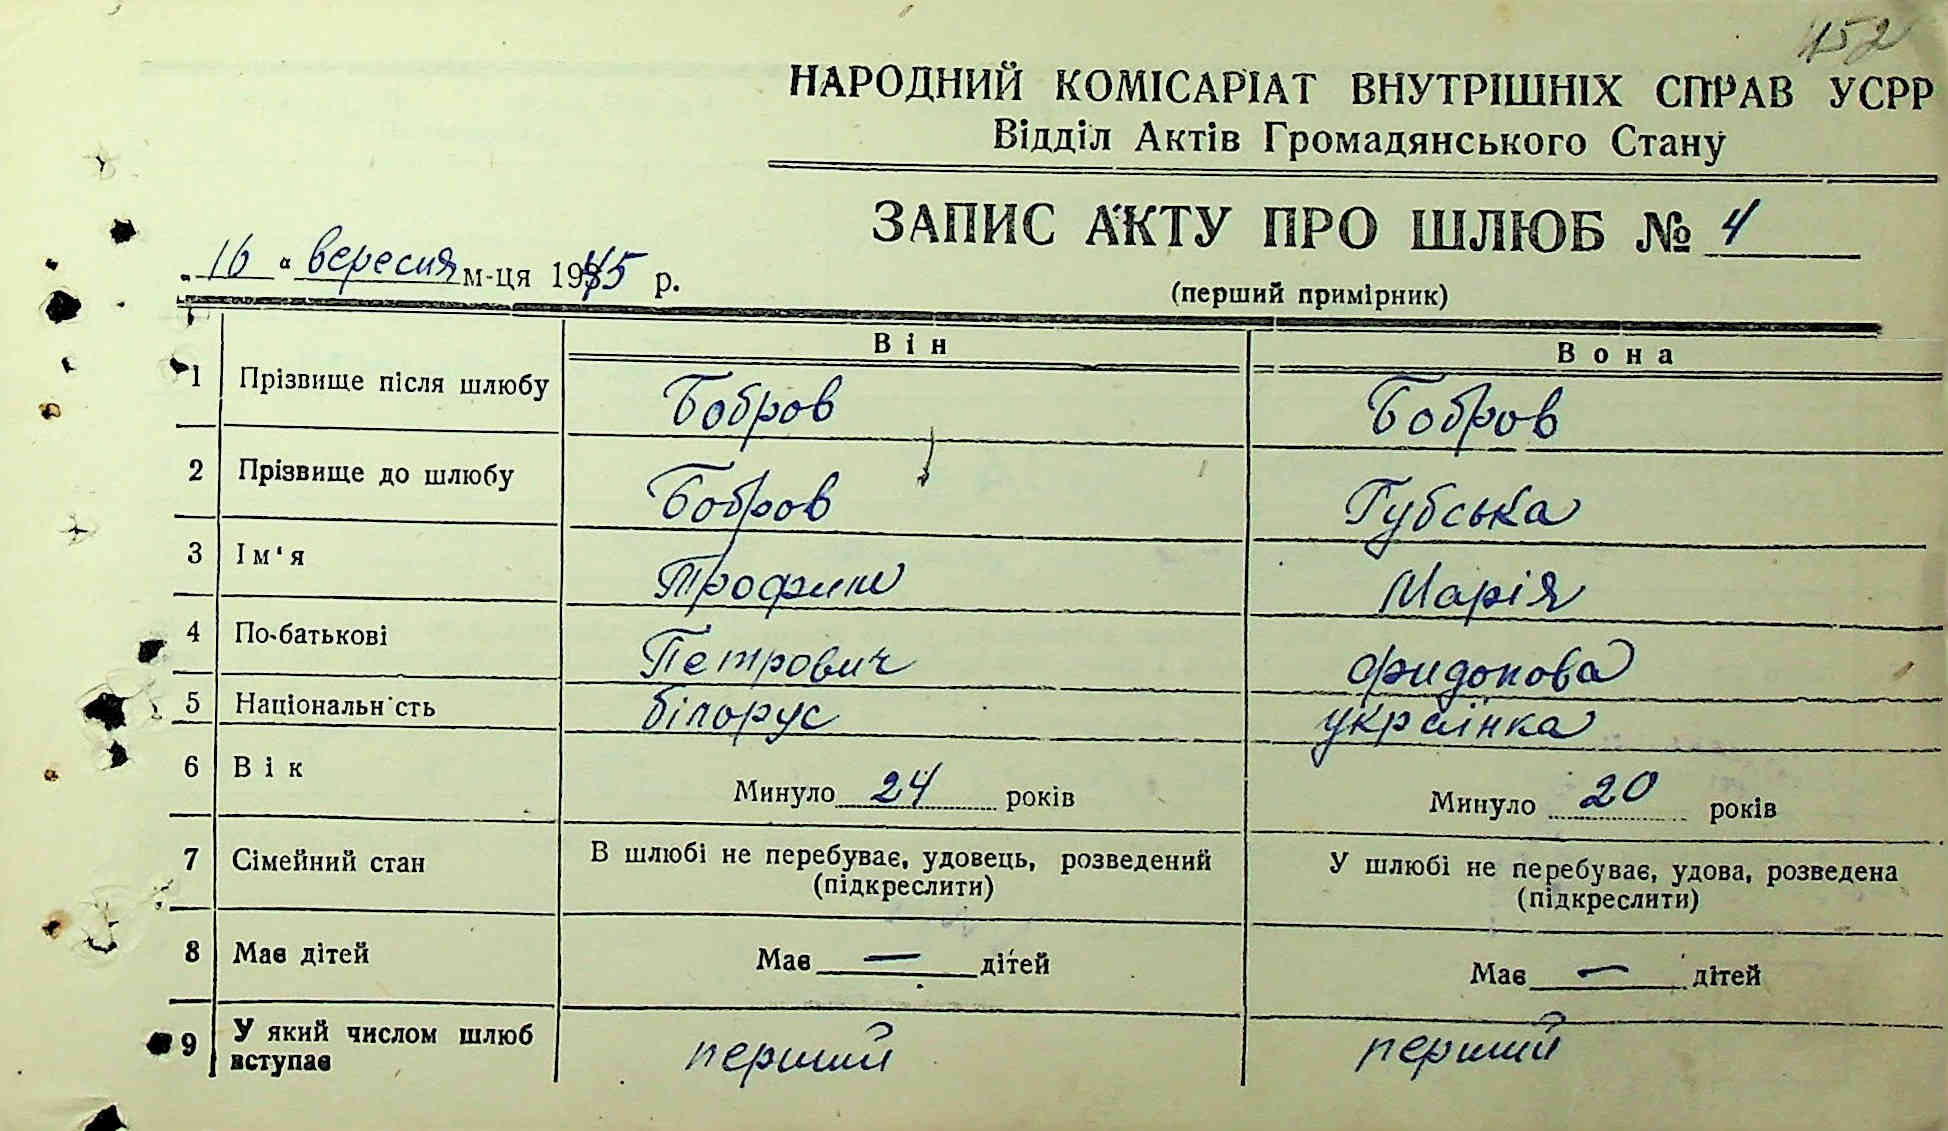 152
НАРОДНИЙ КОМІСАРІАТ ВНУТРІШНІХ СПРАВ УСРР
Відділ Актів Громадянського Стану
ЗАПИС АКТУ ПРО ШЛЮБ № 4
„ 16 “ вересня м-ця 1945 р.
(перший примірник)
Він Вона
1 Прізвище після шлюбу Бобров Бобров
2 Прізвище до шлюбу Бобров Губська
3 Ім‘я Трофим Марія
4 По-батькові Петрович
5 Національність білорус українка
6 Вік Минуло 24 років Минуло 20 років
7 Сімейний стан В шлюбі не перебуває, удовець, розведений (підкреслити) У шлюбі не перебуває, удова, розведена (підкреслити)
8 Має дітей Має — дітей Має — дітей
9 У який числом шлюб вступає перший перший